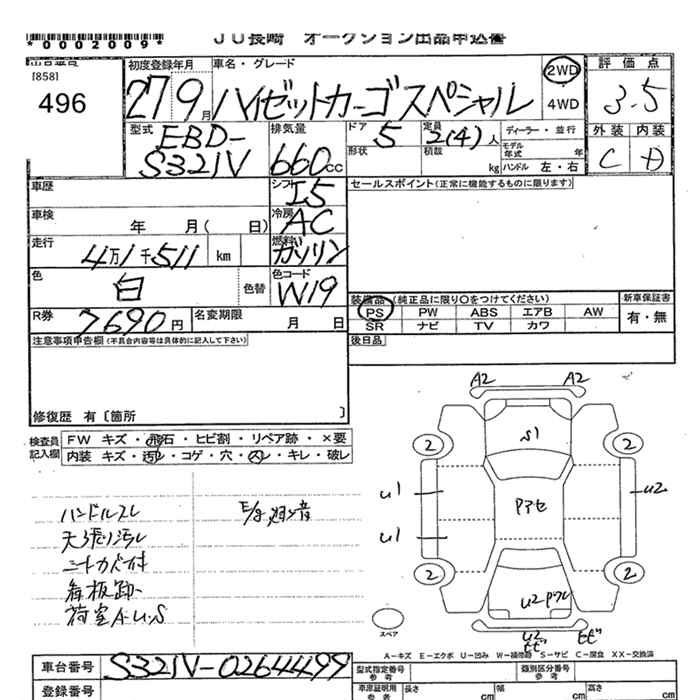 *0002009*
JU長崎 オークション出品申込書
[858]
496
初度登録年月
27 9月
車名・グレード
ハイゼットカーゴスペシャル
2WD
4WD
評価点
3.5
外装 内装
C D
型式
EBD-
S321V
排気量
660cc
ドア
5
形状
定員
2(4)人
積載
kg
ディーラー・並行
モデル年式 年
ハンドル 左・右
車歴
シフト
I5
セールスポイント(正常に機能するものに限ります)
車検
年 月( 日)
冷房
AC
走行
4万1千511 km
燃料
ガソリン
色
白
色替
色コード
W19
R券
7690円
名変期限
月 日
装備品(純正品に限り〇をつけてください)
新車保証書
PS PW ABS エアB AW
有・無
SR ナビ TV カワ
後日品
注意事項申告欄(不具合内容等は具体的に記入して下さい)
修復歴 有〔箇所 〕
検査員記入欄
FW キズ・飛石・ヒビ割・リペア跡・×要
内装 キズ・汚レ・コゲ・穴・スレ・キレ・破レ
ハンドルスレ
天張り汚レ
ニートカバー付
看板跡
荷室A.U.S
A2 A2
S1
2 2
U1 U2
Pアセ
U1
2 2
U2 Pワレ
U2
スペア
A-キズ E-エクボ U-凹み W-補修跡 S-サビ C-腐食 XX-交換済
車台番号
S321V-0264499
登録番号
型式指定番号
参考
類別区分番号
参考
車庫証明用
参考
長さ
cm
幅
cm
高さ
cm